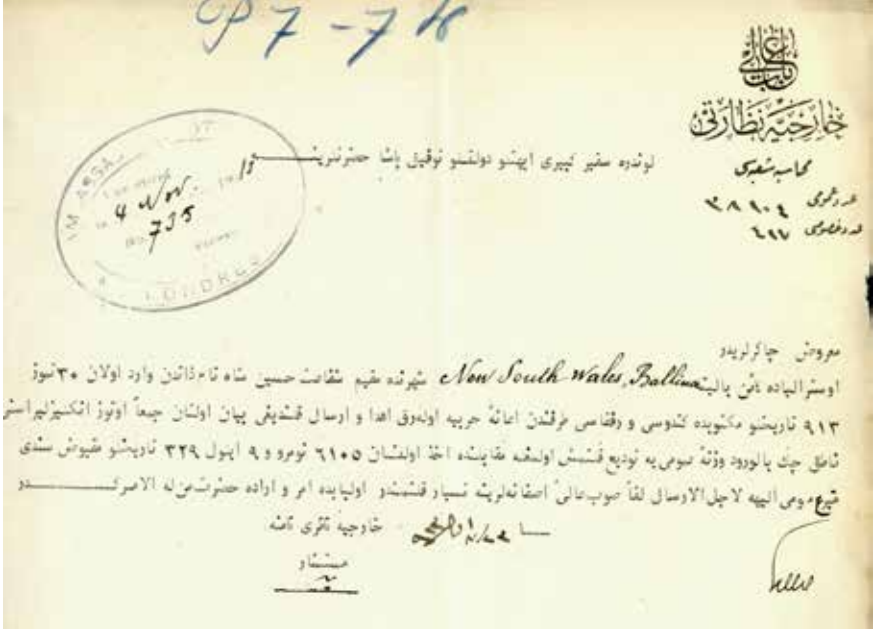 P 7 - 7 b
باب عالی
خارجیه نظارتی
محاسبه شعبه‌سی
عدد عمومی
٣٨٩٠٤
عدد خصوصی
٤٩٧
لوندره سفیر کبیری ابهتلو دولتلو توفیق پاشا حضرتلرینه
4 Nov.
735
LONDRES
معروض چاکرلریدر
اوسترالیاده کائن بالینه New South Wales, Ballina شهرنده مقیم شفاعت حسین شاه نام ذاتدن وارد اولان ٣٠ تموز
٩١٣ تاریخلو مکتوبده کندوسی و رفقاسی طرفندن اعانهٔ حربیه اوله‌رق اهدا و ارسال قلندیغی بیان اولنان جمعاً اوتوز انکلیز لیراسنی
ناطق چك بالورود وزنهٔ عمومی‌یه تودیع قلنمش اولمغله مقابلنده اخذ اولنان ٦١٠٥ نومرو و ٩ ایلول ٣٢٩ تاریخلو مقبوض سندی
مومی الیهه لاجل الارسال لفاً صوب عالیٔ اصفانه‌لرینه تسیار قلنمشدر اولبابده امر و اراده حضرت من له الامرکدر
خارجیه ناظری نامنه
مستشار